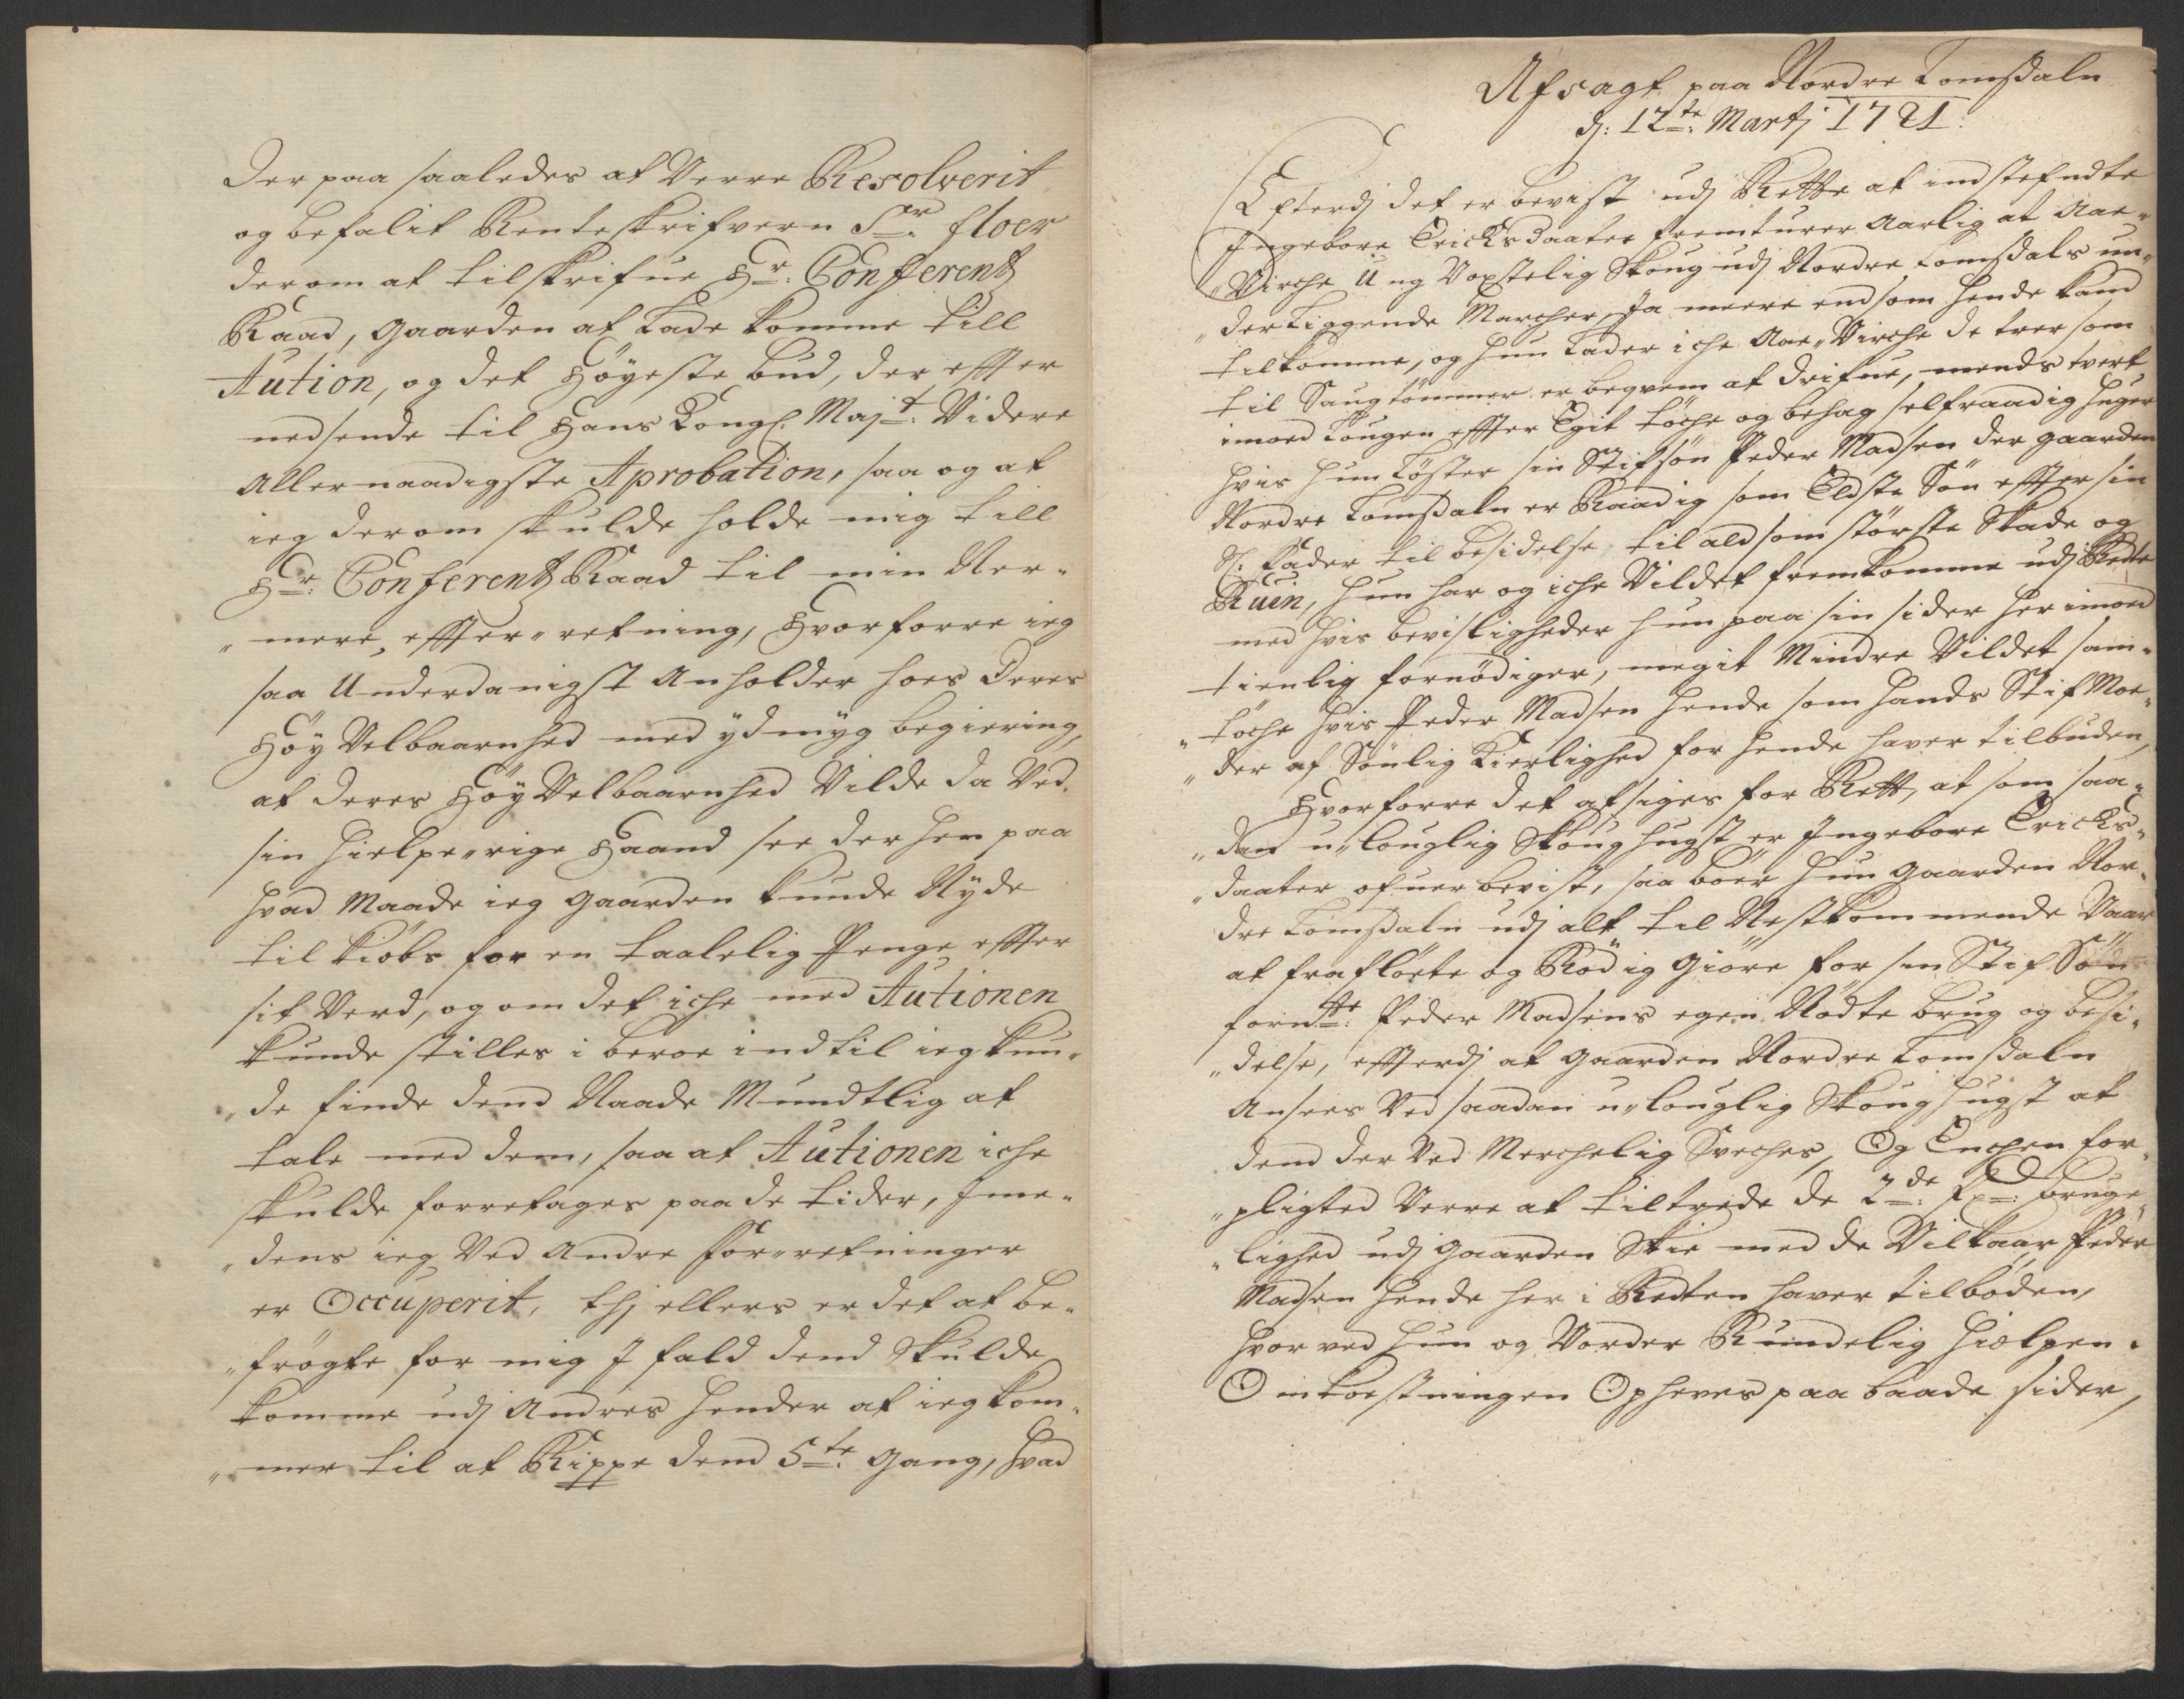 Der paa saaledes at Verre Resolverit
og befalit Renteskrifvern Sr. floer
derom at tilskrifue Hr: Conferentz
Raad, gaarden at Lade komme till
Aution, og det Høyeste bud, der effter
nedsende til Hans Kongl. Majt: Videre
Allernaadigste Aprobation, saa og at
ieg derom skulde holde mig till
Hr: Conferentz Raad til min Ner-
"mere, effter"retning, Hvorforre ieg
saa Underdanigst Anholder hoes Deres
Høy Velbaarnhed med ydmyg begiering,
at deres Høy Velbaarnhed Vilde da Ved
sin hielpe"rige Haand see der hen paa
hvad Maade ieg gaarden kunde Nyde
til kiøbs for en taalelig Penge effter
sit Verd, og om det iche med Autionen
kunde stilles i beroe indtil ieg kun-
"de finde dend Naade Mundtlig at
tale med dem, saa at Autionen iche
skulde forretages paa de tider, Ime-
"dens ieg Ved Andre for"retninger
er Occuperit, thj ellers er det at be-
"frøgte for mig J fald dend skulde
komme udj Andres hender at ieg kom-
"mer til at Rippe dend 5te: gang, hvad
Afsagt paa Nordre Lomsdaln
d: 12te: Martj 1721.
Efterdj det er bevist udj Rette at indstefndte
Ingebore Ericksdaater fremturer Aarlig at Aae-
"Virche Ung Voxtelig Skoug udj Nordre Lomsdals un-
"derliggende Marcher, Ja meere end som hende kand
tilkomme, og hun Lader iche Aae"Virche de træer som
til Saugtømmer er beqvem at drifue, mends tvert
imoed Lougen effter Egit tøche og behag selfraadig huger
hvis hun Løster sin Stifsøn Peder Madsen der gaarden
Nordre Lomsdaln er Raadig som Eldste Søn effter sin
Sl. Fader til besidelse, til ald som største Skade og
Ruin, hun har og iche Vildet fremkomme udj Rette
med hvis bevisligheder hun paa sin sider her imoed
tienlig fornødiger, megit Mindre Vildet sam-
"tøche hvis Peder Madsen hende som hands Stif Moe-
"der af Sønlig Kierlighed for hende haver tilbuden,
Hvorforre det afsiges for Rett, at som saa-
"dan u"louglig Skoug hugst er Ingebore Ericks-
"daater ofuer bevist, saa bør hun gaarden Nor-
dre Lomsdaln udj alt til Nestkommende Vaar
at fra fløtte og Rødig giøre for sin Stif Søn
fornte: Peder Madsens egen Nødte brug og besi-
"delse, effterdj at gaarden Nordre Lomsdaln
Ansees Ved saadan u"louglig Skoug hugst at
dend der Ved Merchelig Sveches, Og Enchen for-
"pligted Verre at tiltrede de 2de: bruge-
"lighed udj gaarden Skie med de Vilkaar Peder
Madsen hende her i Retten haver tilboden,
hvor ved hun og Vorder Rundelig hiolpen.
Omkostningen Opheves paa baade sider,